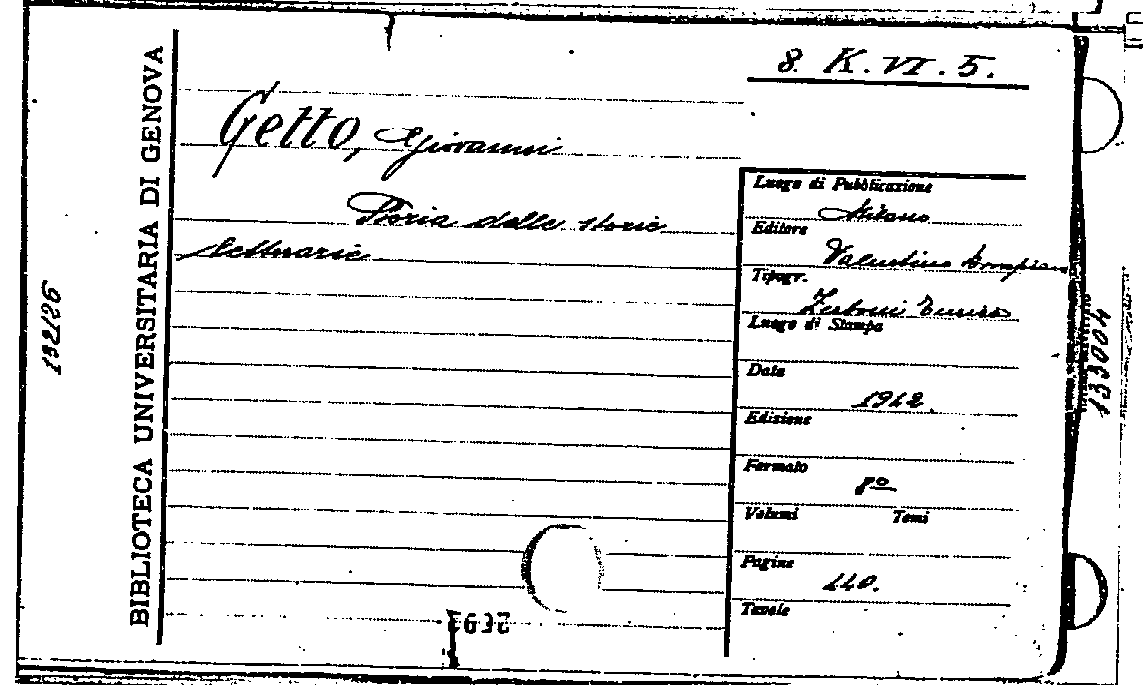 8. K. VI. 5.
BIBLIOTECA UNIVERSITARIA DI GENOVA
Getto, Giovanni
Storia delle storie
letterarie
Luogo di Pubblicazione
Milano
Editore
Valentino Bompiani
Tipogr.
Luogo di Stampa
Data
1942.
Edizione
Formato
8º
Volumi Tomi
Pagine
Tavole
133004